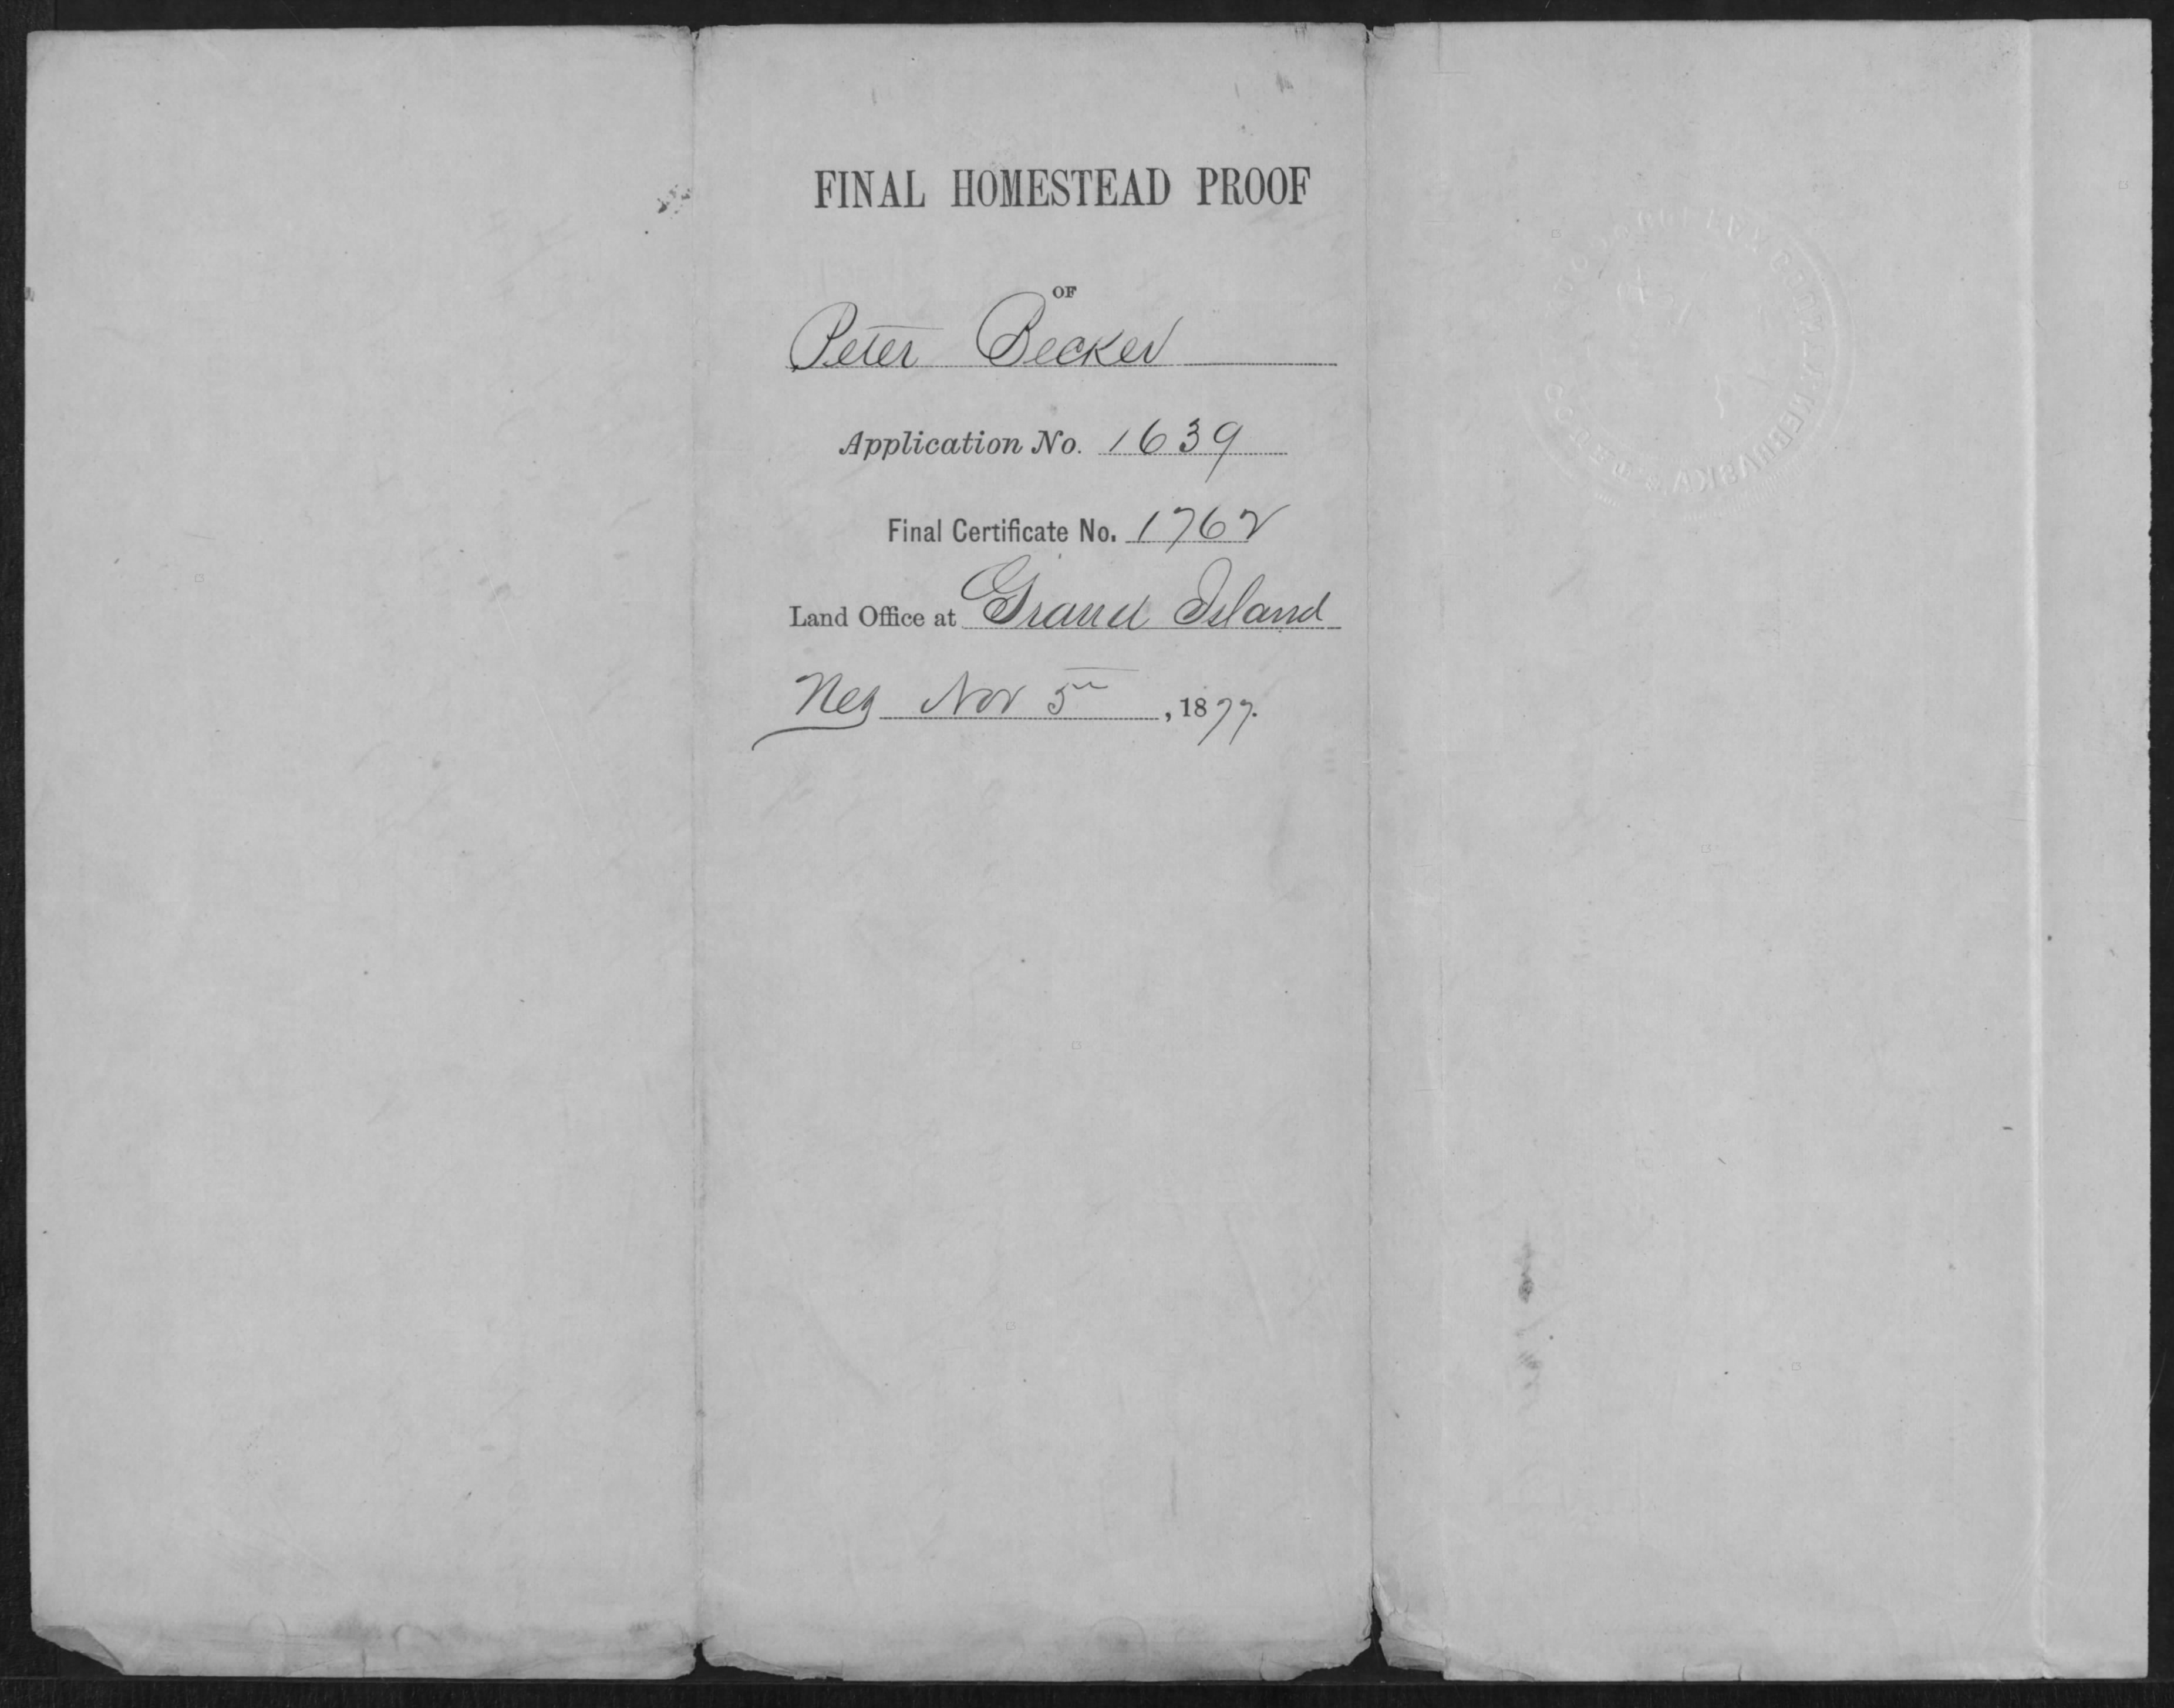 FINAL HOMESTEAD PROOF
OF
Peter Becker
Application No. 1639
Final Certificate No. 1762
Land Office at Grand Island
Neb Nov 5th, 1877.